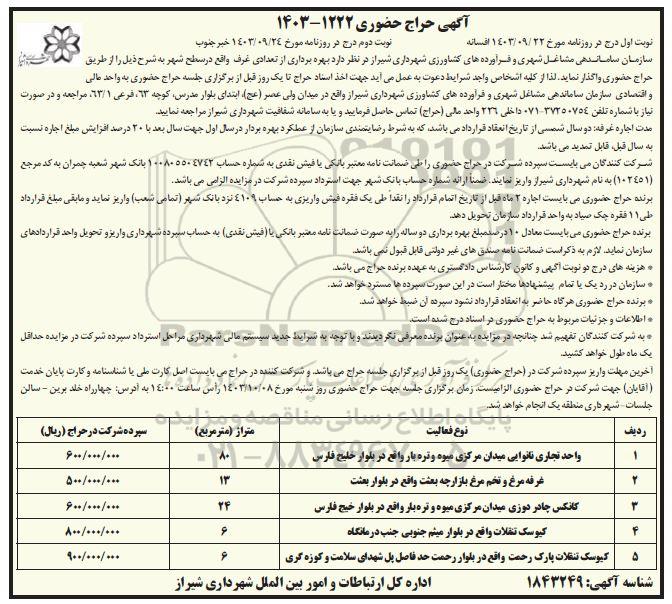 آگهی حراج حضوری ۱۲۲۲-۱۴۰۳
نوبت اول درج در روزنامه مورخ ۱۴۰۳/۰۹/۲۲ افسانه نوبت دوم درج در روزنامه مورخ ۱۴۰۳/۰۹/۲۴ خبر جنوب
سازمان ساماندهی مشاغل شهری و فرآورده های کشاورزی شهرداری شیراز در نظر دارد بهره برداری از تعدادی غرف واقع درسطح شهر به شرح ذیل را از طریق
حراج حضوری واگذار نماید. لذا از کلیه اشخاص واجد شرایط دعوت به عمل می آید جهت اخذ اسناد حراج تا یک روز قبل از برگزاری جلسه حراج حضوری به واحد مالی
و اقتصادی سازمان ساماندهی مشاغل شهری و فرآورده های کشاورزی شهرداری شیراز واقع در میدان ولی عصر (عج)، ابتدای بلوار مدرس، کوچه ۶۳، فرعی ۶۳/۱، مراجعه و در صورت
نیاز با شماره تلفن ۳۷۲۵۰۷۵۴-۰۷۱ داخلی ۲۳۶ واحد مالی (حراج) تماس حاصل فرمایید و یا به سامانه شفافیت شهرداری شیراز مراجعه نمایید.
مدت اجاره غرفه: دو سال شمسی از تاریخ انعقاد قرارداد می باشد، که به شرط رضایتمندی سازمان از عملکرد بهره بردار در سال اول جهت سال بعد با ۲۰ درصد افزایش مبلغ اجاره نسبت
به سال قبل، قابل تمدید می باشد.
شرکت کنندگان می بایست سپرده شرکت در حراج حضوری را طی ضمانت نامه معتبر بانکی یا فیش نقدی به شماره حساب ۱۰۰۸۰۵۵۰۴۷۴۲ بانک شهر شعبه چمران به کد مرجع
(۱۰۲۴۵۱) به نام شهرداری شیراز واریز نمایند. ضمناً ارائه شماره حساب بانک شهر جهت استرداد سپرده شرکت در مزایده الزامی می باشد.
برنده حراج حضوری می بایست اجاره ۲ ماه قبل از تاریخ اتمام قرارداد را نقداً طی یک فقره فیش واریزی به حساب ۴۱۰۹ نزد بانک شهر (تمامی شعب) واریز نماید و مابقی مبلغ قرارداد
طی ۱۱ فقره چک صیاد به واحد قرارداد سازمان تحویل دهد.
برنده حراج حضوری می بایست معادل ۱۰ درصد مبلغ بهره برداری دو ساله را به صورت ضمانت نامه معتبر بانکی یا (فیش نقدی) به حساب سپرده شهرداری واریز و تحویل واحد قراردادهای
سازمان نماید. لازم به ذکر است ضمانت نامه صندق های غیر دولتی قابل قبول نمی باشد.
* هزینه های درج دو نوبت آگهی و کانون کارشناس دادگستری به عهده برنده حراج می باشد.
* سازمان در رد یک یا تمام پیشنهادها مختار است در این صورت سپرده ها مسترد خواهد شد.
* برنده حراج حضوری هرگاه حاضر به انعقاد قرارداد نشود سپرده آن ضبط خواهد شد.
* اطلاعات و جزئیات مربوط به حراج حضوری در اسناد درج شده است.
* به شرکت کنندگان تفهیم شد چنانچه در مزایده به عنوان برنده معرفی نگردیدند و با توجه به شرایط جدید سیستم مالی شهرداری مراحل استرداد سپرده شرکت در مزایده حداقل
یک ماه طول خواهد کشید.
آخرین مهلت واریز سپرده شرکت در (حراج حضوری) یک روز قبل از برگزاری جلسه حراج می باشد. و شرکت کننده در حراج می بایست اصل کارت ملی یا شناسنامه و کارت پایان خدمت
(آقایان) جهت شرکت در حراج حضوری الزامیست. زمان برگزاری جلسه جهت حراج حضوری روز شنبه مورخ ۱۴۰۳/۱۰/۰۸ راس ساعت ۱۴:۰۰ به آدرس: چهارراه خلد برین - سالن
جلسات - شهرداری منطقه یک انجام خواهد شد.
ردیف نوع فعالیت متراژ (مترمربع) سپرده شرکت در حراج (ریال)
۱ واحد تجاری نانوایی میدان مرکزی میوه و تره بار واقع در بلوار خلیج فارس ۸۰ ۶۰۰/۰۰۰/۰۰۰
۲ غرفه مرغ و تخم مرغ بازارچه بعثت واقع در بلوار بعثت ۱۳ ۵۰۰/۰۰۰/۰۰۰
۳ کانکس چادر دوزی میدان مرکزی میوه و تره بار واقع در بلوار خیج فارس ۲۴ ۶۰۰/۰۰۰/۰۰۰
۴ کیوسک تنقلات واقع در بلوار میثم جنوبی جنب درمانگاه ۶ ۸۰۰/۰۰۰/۰۰۰
۵ کیوسک تنقلات پارک رحمت واقع در بلوار رحمت حد فاصل پل شهدای سلامت و کوزه گری ۶ ۹۰۰/۰۰۰/۰۰۰
شناسه آگهی: ۱۸۴۳۲۴۹ اداره کل ارتباطات و امور بین الملل شهرداری شیراز